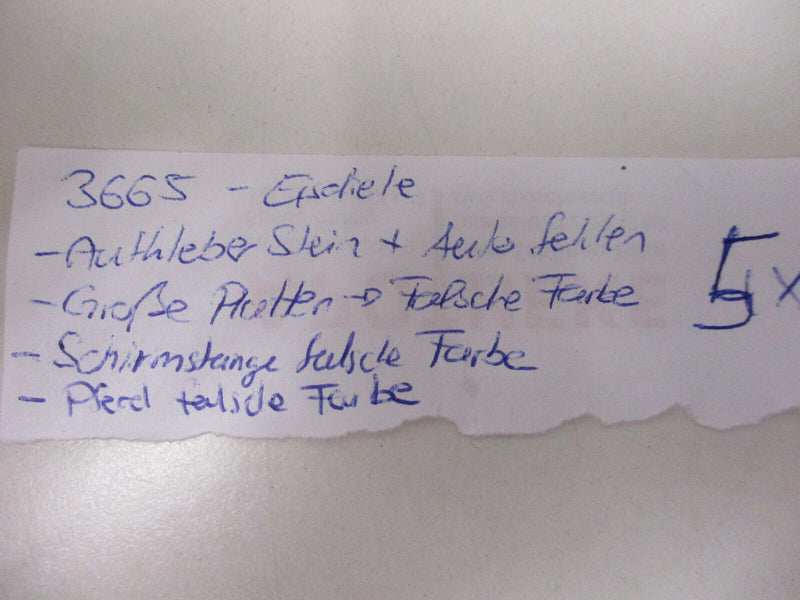 3665 - Eisdiele
- Aufkleber Stein + Auto fehlen
- Große Platten → Falsche Farbe
- Schirmstange falsche Farbe
- Pferd falsche Farbe
5x